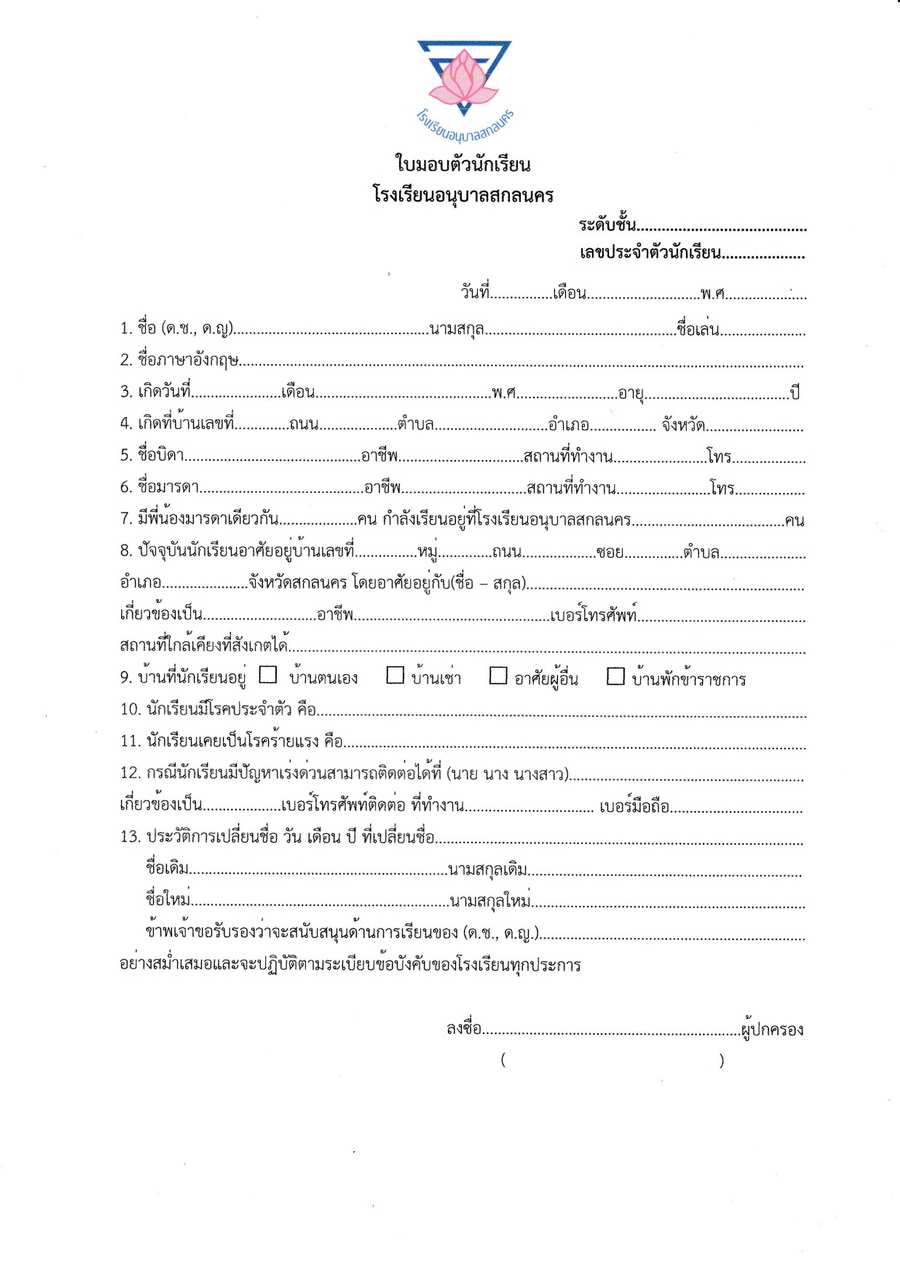 โรงเรียนอนุบาลสกลนคร
ใบมอบตัวนักเรียน
โรงเรียนอนุบาลสกลนคร
ระดับชั้น........................................
เลขประจำตัวนักเรียน....................
วันที่...............เดือน...........................พ.ศ....................
1. ชื่อ (ด.ช., ด.ญ)...............................................นามสกุล..............................................ชื่อเล่น.....................
2. ชื่อภาษาอังกฤษ........................................................................................................................................
3. เกิดวันที่......................เดือน...........................................พ.ศ.........................อายุ...................................ปี
4. เกิดที่บ้านเลขที่.............ถนน...................ตำบล...........................อำเภอ................ จังหวัด........................
5. ชื่อบิดา...........................................อาชีพ..............................สถานที่ทำงาน.......................โทร..................
6. ชื่อมารดา........................................อาชีพ..............................สถานที่ทำงาน.......................โทร.................
7. มีพี่น้องมารดาเดียวกัน...................คน กำลังเรียนอยู่ที่โรงเรียนอนุบาลสกลนคร.....................................คน
8. ปัจจุบันนักเรียนอาศัยอยู่บ้านเลขที่...............หมู่.............ถนน..................ซอย..............ตำบล.....................
อำเภอ.....................จังหวัดสกลนคร โดยอาศัยอยู่กับ(ชื่อ – สกุล)....................................................................
เกี่ยวข้องเป็น...........................อาชีพ................................................เบอร์โทรศัพท์.........................................
สถานที่ใกล้เคียงที่สังเกตได้.............................................................................................................................
9. บ้านที่นักเรียนอยู่ ☐ บ้านตนเอง ☐ บ้านเช่า ☐ อาศัยผู้อื่น ☐ บ้านพักข้าราชการ
10. นักเรียนมีโรคประจำตัว คือ......................................................................................................................
11. นักเรียนเคยเป็นโรคร้ายแรง คือ................................................................................................................
12. กรณีนักเรียนมีปัญหาเร่งด่วนสามารถติดต่อได้ที่ (นาย นาง นางสาว).........................................................
เกี่ยวข้องเป็น...................เบอร์โทรศัพท์ติดต่อ ที่ทำงาน................................ เบอร์มือถือ................................
13. ประวัติการเปลี่ยนชื่อ วัน เดือน ปี ที่เปลี่ยนชื่อ.........................................................................................
ชื่อเดิม...............................................................นามสกุลเดิม...................................................................
ชื่อใหม่...............................................................นามสกุลใหม่..................................................................
ข้าพเจ้าขอรับรองว่าจะสนับสนุนด้านการเรียนของ (ด.ช., ด.ญ.)................................................................
อย่างสม่ำเสมอและจะปฏิบัติตามระเบียบข้อบังคับของโรงเรียนทุกประการ
ลงชื่อ...............................................................ผู้ปกครอง
( )